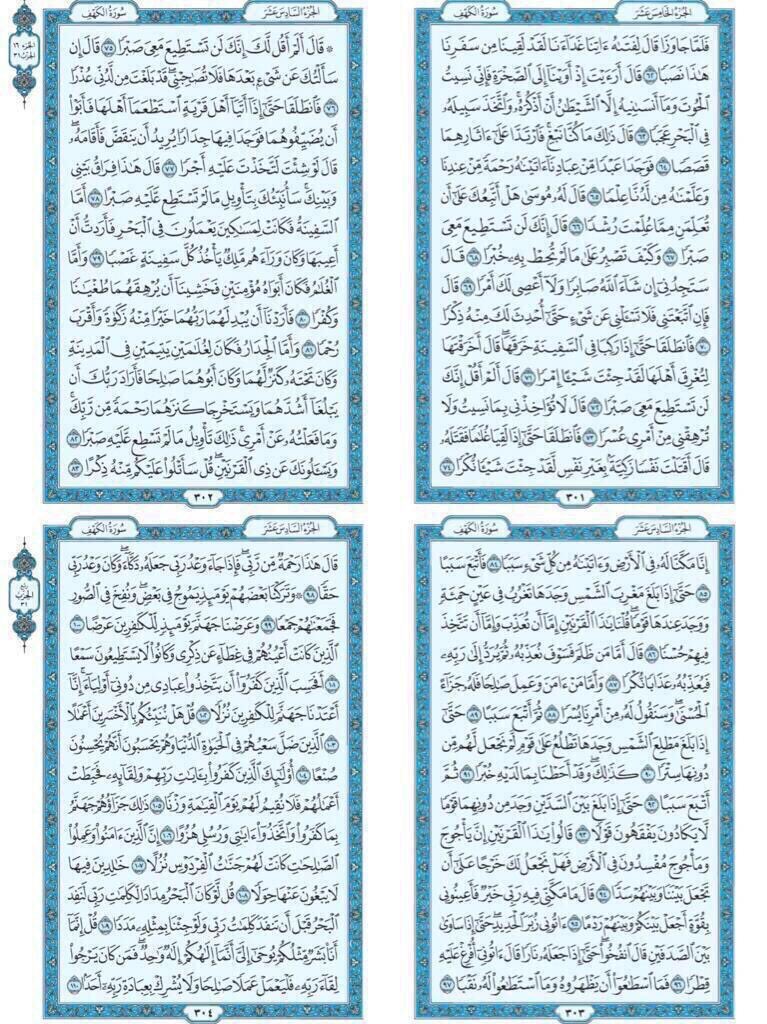 الجزء الخامس عشر
سورة الكهف
فَلَمَّا جَاوَزَا قَالَ لِفَتَىٰهُ ءَاتِنَا غَدَآءَنَا لَقَدْ لَقِينَا مِن سَفَرِنَا
هَٰذَا نَصَبًا ٦٢ قَالَ أَرَءَيْتَ إِذْ أَوَيْنَآ إِلَى ٱلصَّخْرَةِ فَإِنِّي نَسِيتُ
ٱلْحُوتَ وَمَآ أَنسَىٰنِيهُ إِلَّا ٱلشَّيْطَٰنُ أَنْ أَذْكُرَهُۥ وَٱتَّخَذَ سَبِيلَهُۥ
فِي ٱلْبَحْرِ عَجَبًا ٦٣ قَالَ ذَٰلِكَ مَا كُنَّا نَبْغِ فَٱرْتَدَّا عَلَىٰٓ ءَاثَارِهِمَا
قَصَصًا ٦٤ فَوَجَدَا عَبْدًا مِّنْ عِبَادِنَآ ءَاتَيْنَٰهُ رَحْمَةً مِّنْ عِندِنَا
وَعَلَّمْنَٰهُ مِن لَّدُنَّا عِلْمًا ٦٥ قَالَ لَهُۥ مُوسَىٰ هَلْ أَتَّبِعُكَ عَلَىٰٓ أَن
تُعَلِّمَنِ مِمَّا عُلِّمْتَ رُشْدًا ٦٦ قَالَ إِنَّكَ لَن تَسْتَطِيعَ مَعِيَ
صَبْرًا ٦٧ وَكَيْفَ تَصْبِرُ عَلَىٰ مَا لَمْ تُحِطْ بِهِۦ خُبْرًا ٦٨ قَالَ
سَتَجِدُنِيٓ إِن شَآءَ ٱللَّهُ صَابِرًا وَلَآ أَعْصِي لَكَ أَمْرًا ٦٩ قَالَ
فَإِنِ ٱتَّبَعْتَنِي فَلَا تَسْـَٔلْنِي عَن شَيْءٍ حَتَّىٰٓ أُحْدِثَ لَكَ مِنْهُ ذِكْرًا
٧٠ فَٱنطَلَقَا حَتَّىٰٓ إِذَا رَكِبَا فِي ٱلسَّفِينَةِ خَرَقَهَا قَالَ أَخَرَقْتَهَا
لِتُغْرِقَ أَهْلَهَا لَقَدْ جِئْتَ شَيْـًٔا إِمْرًا ٧١ قَالَ أَلَمْ أَقُلْ إِنَّكَ
لَن تَسْتَطِيعَ مَعِيَ صَبْرًا ٧٢ قَالَ لَا تُؤَاخِذْنِي بِمَا نَسِيتُ وَلَا
تُرْهِقْنِي مِنْ أَمْرِي عُسْرًا ٧٣ فَٱنطَلَقَا حَتَّىٰٓ إِذَا لَقِيَا غُلَٰمًا فَقَتَلَهُۥ
قَالَ أَقَتَلْتَ نَفْسًا زَكِيَّةًۢ بِغَيْرِ نَفْسٍ لَّقَدْ جِئْتَ شَيْـًٔا نُّكْرًا ٧٤
٣٠١
الجزء السادس عشر
سورة الكهف
الجزء ١٦
الحزب ٣١
۞ قَالَ أَلَمْ أَقُل لَّكَ إِنَّكَ لَن تَسْتَطِيعَ مَعِيَ صَبْرًا ٧٥ قَالَ إِن
سَأَلْتُكَ عَن شَيْءٍۭ بَعْدَهَا فَلَا تُصَٰحِبْنِي قَدْ بَلَغْتَ مِن لَّدُنِّي عُذْرًا
٧٦ فَٱنطَلَقَا حَتَّىٰٓ إِذَآ أَتَيَآ أَهْلَ قَرْيَةٍ ٱسْتَطْعَمَآ أَهْلَهَا فَأَبَوْا۟
أَن يُضَيِّفُوهُمَا فَوَجَدَا فِيهَا جِدَارًا يُرِيدُ أَن يَنقَضَّ فَأَقَامَهُۥ
قَالَ لَوْ شِئْتَ لَتَّخَذْتَ عَلَيْهِ أَجْرًا ٧٧ قَالَ هَٰذَا فِرَاقُ بَيْنِي
وَبَيْنِكَ سَأُنَبِّئُكَ بِتَأْوِيلِ مَا لَمْ تَسْتَطِع عَّلَيْهِ صَبْرًا ٧٨ أَمَّا
ٱلسَّفِينَةُ فَكَانَتْ لِمَسَٰكِينَ يَعْمَلُونَ فِي ٱلْبَحْرِ فَأَرَدتُّ أَنْ
أَعِيبَهَا وَكَانَ وَرَآءَهُم مَّلِكٌ يَأْخُذُ كُلَّ سَفِينَةٍ غَصْبًا ٧٩ وَأَمَّا
ٱلْغُلَٰمُ فَكَانَ أَبَوَاهُ مُؤْمِنَيْنِ فَخَشِينَآ أَن يُرْهِقَهُمَا طُغْيَٰنًا
وَكُفْرًا ٨٠ فَأَرَدْنَآ أَن يُبْدِلَهُمَا رَبُّهُمَا خَيْرًا مِّنْهُ زَكَوٰةً وَأَقْرَبَ
رُحْمًا ٨١ وَأَمَّا ٱلْجِدَارُ فَكَانَ لِغُلَٰمَيْنِ يَتِيمَيْنِ فِي ٱلْمَدِينَةِ
وَكَانَ تَحْتَهُۥ كَنزٌ لَّهُمَا وَكَانَ أَبُوهُمَا صَٰلِحًا فَأَرَادَ رَبُّكَ أَن
يَبْلُغَآ أَشُدَّهُمَا وَيَسْتَخْرِجَا كَنزَهُمَا رَحْمَةً مِّن رَّبِّكَ
وَمَا فَعَلْتُهُۥ عَنْ أَمْرِي ذَٰلِكَ تَأْوِيلُ مَا لَمْ تَسْطِع عَّلَيْهِ صَبْرًا ٨٢
وَيَسْـَٔلُونَكَ عَن ذِي ٱلْقَرْنَيْنِ قُلْ سَأَتْلُوا۟ عَلَيْكُم مِّنْهُ ذِكْرًا ٨٣
٣٠٢
الجزء السادس عشر
سورة الكهف
إِنَّا مَكَّنَّا لَهُۥ فِي ٱلْأَرْضِ وَءَاتَيْنَٰهُ مِن كُلِّ شَيْءٍ سَبَبًا ٨٤ فَأَتْبَعَ سَبَبًا
٨٥ حَتَّىٰٓ إِذَا بَلَغَ مَغْرِبَ ٱلشَّمْسِ وَجَدَهَا تَغْرُبُ فِي عَيْنٍ حَمِئَةٍ
وَوَجَدَ عِندَهَا قَوْمًا قُلْنَا يَٰذَا ٱلْقَرْنَيْنِ إِمَّآ أَن تُعَذِّبَ وَإِمَّآ أَن تَتَّخِذَ
فِيهِمْ حُسْنًا ٨٦ قَالَ أَمَّا مَن ظَلَمَ فَسَوْفَ نُعَذِّبُهُۥ ثُمَّ يُرَدُّ إِلَىٰ رَبِّهِۦ
فَيُعَذِّبُهُۥ عَذَابًا نُّكْرًا ٨٧ وَأَمَّا مَنْ ءَامَنَ وَعَمِلَ صَٰلِحًا فَلَهُۥ جَزَآءً
ٱلْحُسْنَىٰ وَسَنَقُولُ لَهُۥ مِنْ أَمْرِنَا يُسْرًا ٨٨ ثُمَّ أَتْبَعَ سَبَبًا ٨٩ حَتَّىٰٓ
إِذَا بَلَغَ مَطْلِعَ ٱلشَّمْسِ وَجَدَهَا تَطْلُعُ عَلَىٰ قَوْمٍ لَّمْ نَجْعَل لَّهُم مِّن
دُونِهَا سِتْرًا ٩٠ كَذَٰلِكَ وَقَدْ أَحَطْنَا بِمَا لَدَيْهِ خُبْرًا ٩١ ثُمَّ
أَتْبَعَ سَبَبًا ٩٢ حَتَّىٰٓ إِذَا بَلَغَ بَيْنَ ٱلسَّدَّيْنِ وَجَدَ مِن دُونِهِمَا قَوْمًا
لَّا يَكَادُونَ يَفْقَهُونَ قَوْلًا ٩٣ قَالُوا۟ يَٰذَا ٱلْقَرْنَيْنِ إِنَّ يَأْجُوجَ
وَمَأْجُوجَ مُفْسِدُونَ فِي ٱلْأَرْضِ فَهَلْ نَجْعَلُ لَكَ خَرْجًا عَلَىٰٓ أَن
تَجْعَلَ بَيْنَنَا وَبَيْنَهُمْ سَدًّا ٩٤ قَالَ مَا مَكَّنِّي فِيهِ رَبِّي خَيْرٌ فَأَعِينُونِي
بِقُوَّةٍ أَجْعَلْ بَيْنَكُمْ وَبَيْنَهُمْ رَدْمًا ٩٥ ءَاتُونِي زُبَرَ ٱلْحَدِيدِ حَتَّىٰٓ إِذَا سَاوَىٰ
بَيْنَ ٱلصَّدَفَيْنِ قَالَ ٱنفُخُوا۟ حَتَّىٰٓ إِذَا جَعَلَهُۥ نَارًا قَالَ ءَاتُونِيٓ أُفْرِغْ عَلَيْهِ
قِطْرًا ٩٦ فَمَا ٱسْطَٰعُوٓا۟ أَن يَظْهَرُوهُ وَمَا ٱسْتَطَٰعُوا۟ لَهُۥ نَقْبًا ٩٧
٣٠٣
الجزء السادس عشر
سورة الكهف
ربع
الحزب
٣١
قَالَ هَٰذَا رَحْمَةٌ مِّن رَّبِّي فَإِذَا جَآءَ وَعْدُ رَبِّي جَعَلَهُۥ دَكَّآءَ وَكَانَ وَعْدُ رَبِّي
حَقًّا ٩٨ ۞ وَتَرَكْنَا بَعْضَهُمْ يَوْمَئِذٍ يَمُوجُ فِي بَعْضٍ وَنُفِخَ فِي ٱلصُّورِ
فَجَمَعْنَٰهُمْ جَمْعًا ٩٩ وَعَرَضْنَا جَهَنَّمَ يَوْمَئِذٍ لِّلْكَٰفِرِينَ عَرْضًا ١٠٠
ٱلَّذِينَ كَانَتْ أَعْيُنُهُمْ فِي غِطَآءٍ عَن ذِكْرِي وَكَانُوا۟ لَا يَسْتَطِيعُونَ سَمْعًا
١٠١ أَفَحَسِبَ ٱلَّذِينَ كَفَرُوٓا۟ أَن يَتَّخِذُوا۟ عِبَادِي مِن دُونِيٓ أَوْلِيَآءَ إِنَّآ
أَعْتَدْنَا جَهَنَّمَ لِلْكَٰفِرِينَ نُزُلًا ١٠٢ قُلْ هَلْ نُنَبِّئُكُم بِٱلْأَخْسَرِينَ أَعْمَٰلًا
١٠٣ ٱلَّذِينَ ضَلَّ سَعْيُهُمْ فِي ٱلْحَيَوٰةِ ٱلدُّنْيَا وَهُمْ يَحْسَبُونَ أَنَّهُمْ يُحْسِنُونَ
صُنْعًا ١٠٤ أُو۟لَٰٓئِكَ ٱلَّذِينَ كَفَرُوا۟ بِـَٔايَٰتِ رَبِّهِمْ وَلِقَآئِهِۦ فَحَبِطَتْ
أَعْمَٰلُهُمْ فَلَا نُقِيمُ لَهُمْ يَوْمَ ٱلْقِيَٰمَةِ وَزْنًا ١٠٥ ذَٰلِكَ جَزَآؤُهُمْ جَهَنَّمُ
بِمَا كَفَرُوا۟ وَٱتَّخَذُوٓا۟ ءَايَٰتِي وَرُسُلِي هُزُوًا ١٠٦ إِنَّ ٱلَّذِينَ ءَامَنُوا۟ وَعَمِلُوا۟
ٱلصَّٰلِحَٰتِ كَانَتْ لَهُمْ جَنَّٰتُ ٱلْفِرْدَوْسِ نُزُلًا ١٠٧ خَٰلِدِينَ فِيهَا
لَا يَبْغُونَ عَنْهَا حِوَلًا ١٠٨ قُل لَّوْ كَانَ ٱلْبَحْرُ مِدَادًا لِّكَلِمَٰتِ رَبِّي لَنَفِدَ
ٱلْبَحْرُ قَبْلَ أَن تَنفَدَ كَلِمَٰتُ رَبِّي وَلَوْ جِئْنَا بِمِثْلِهِۦ مَدَدًا ١٠٩ قُلْ إِنَّمَآ
أَنَا۠ بَشَرٌ مِّثْلُكُمْ يُوحَىٰٓ إِلَيَّ أَنَّمَآ إِلَٰهُكُمْ إِلَٰهٌ وَٰحِدٌ فَمَن كَانَ يَرْجُوا۟
لِقَآءَ رَبِّهِۦ فَلْيَعْمَلْ عَمَلًا صَٰلِحًا وَلَا يُشْرِكْ بِعِبَادَةِ رَبِّهِۦٓ أَحَدًۢا ١١٠
٣٠٤